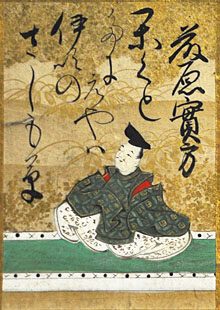 藤原實方
かくと
たにえやは
伊吹の
さしも草